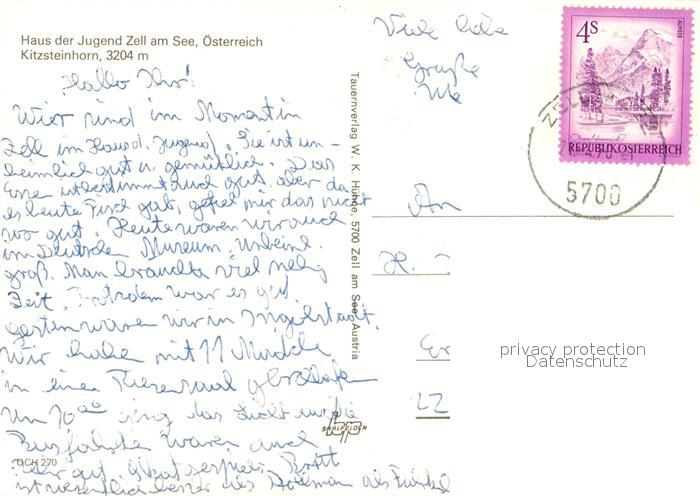 Haus der Jugend Zell am See, Österreich
Kitzsteinhorn, 3204 m
Hallo Ihr!
Wir sind im Moment in
Zell im Haus d. Jugend. Sie ist un-
heimlich gut u. gemütlich. Das
Essen ist bestimmt auch gut, aber da
es heute Fisch gab, gefiel mir das nicht
so gut. Heute waren wir auch
im Deutschen Museum. Unheiml.
groß. Man brauchte viel mehr
Zeit. Trotzdem war es gut
gestern waren wir in Ingolstadt.
Wir haben mit 11 Mädchen
in einem Riesensaal geschlafen
Um 10⁰⁰ ging das Licht aus. Die
Busfahrten waren auch
sehr gut.
ist wesentlich besser als
OCH 270
Tauernverlag W. K. Hühne, 5700 Zell am See, Austria
SAALFELDEN
Viele liebe
Grüße
An
H.
4S
REPUBLIK ÖSTERREICH
5700
privacy protection
Datenschutz